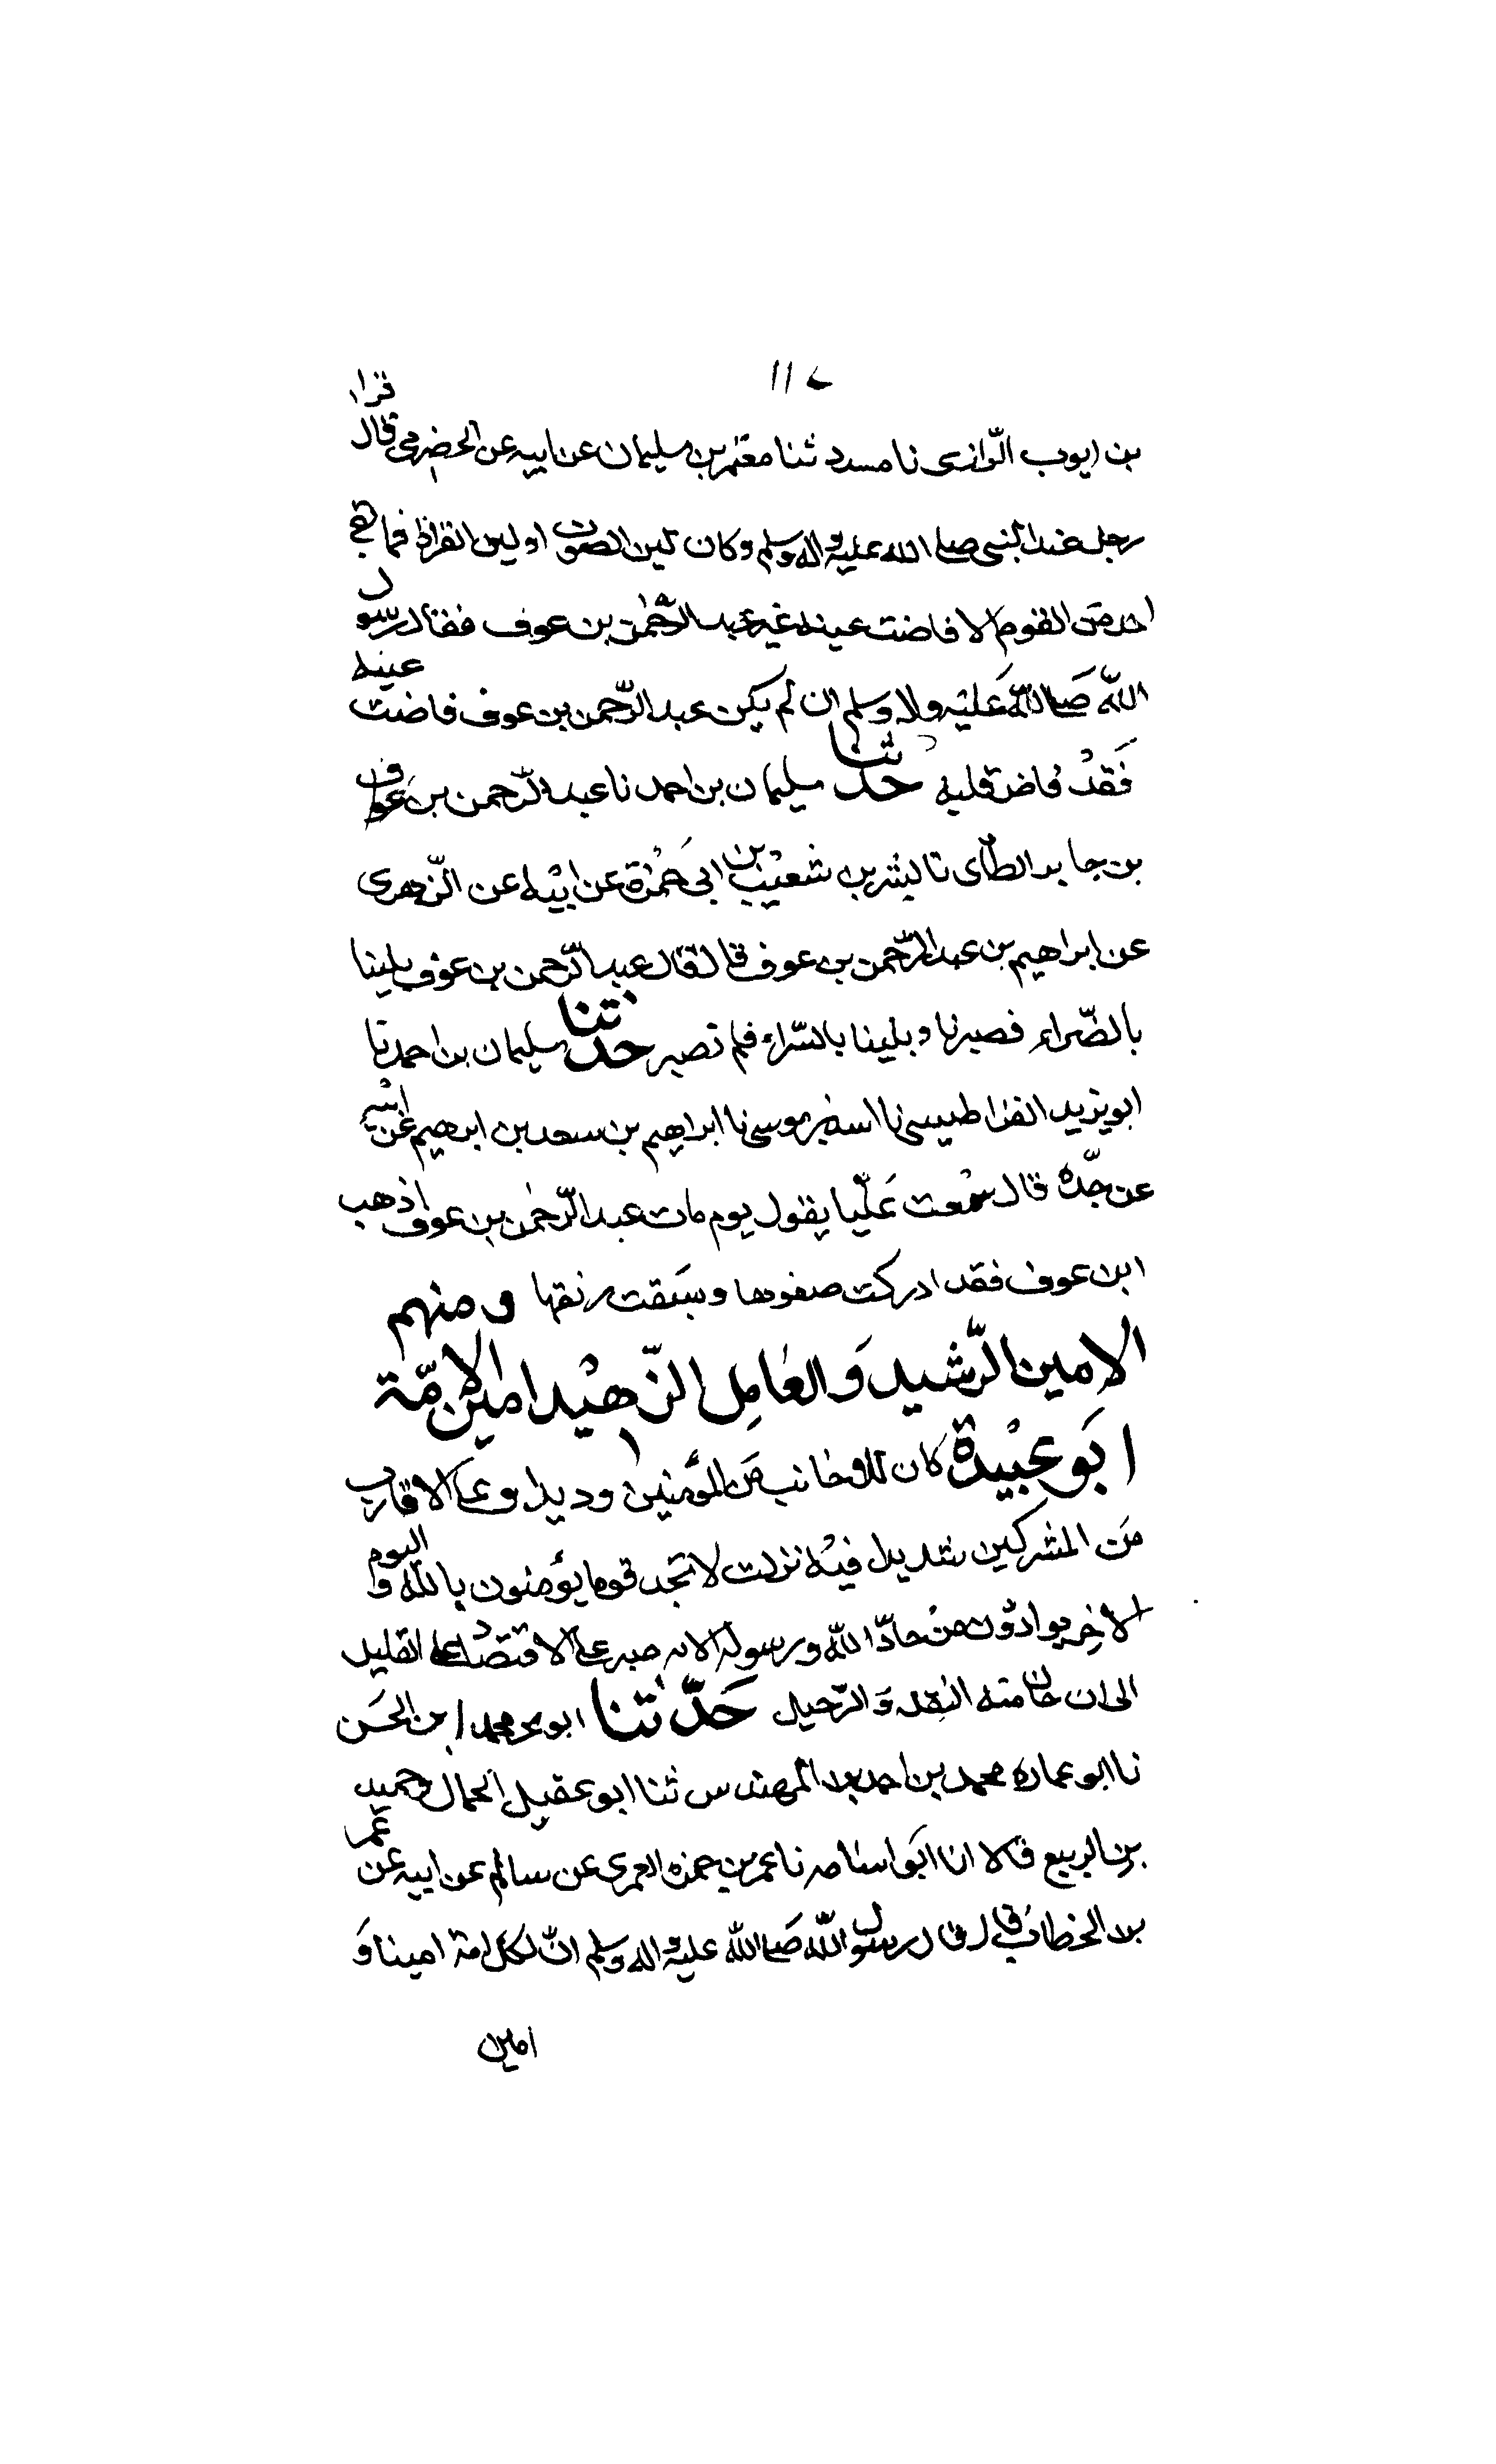 ١١٧
بن ايوب الرّازى نا مسدد ثنا معتمر بن سليمان عن ابيه عن الحضرمى قال قرا
رجل عند النبى صلى الله عليه واله وسلم وكان لين الصوت او لين القراة فما بقى
احد من القوم الا فاضت عينه غير عبد الرّحمٰن بن عوف فقال رسول
اللّه صَلى اللّه عَليْه واله وسلم ان لم يكن عبد الرّحمن بن عوف فاضت عينه
فَقدْ فاض قلبه حدثنا سليمان بن احمد نا عبد الرّحمن بن عوف
بن جابر الطائى نا بشر بن شعيْب بن ابى حَمْزة عن ابيْه عن الزّهرى
عن ابراهيم بن عبد الرّحمن بن عوف قال قال عبد الرّحمن بن عوف بلينا
بالضّراء فصبرنا وبلينا بالسّراء فلم نصبر حدثنا سليمان بن احمد نا
ابو يزيد القراطيسى نا اسد بن موسى نا ابراهيم بن سعد بن ابرهيم عن ابيْه
عن جّده قال سمْعت عَليّا يقول يوم مات عبد الرّحمٰن بن عوف اذهب
ابن عوف فقد ادركت صفوها وسَبقت رنقها ومنهم
الامين الرّشيد وَالعَامِل الزّهيْد امين الامّة
ابَو عبيْدة كان للاجانب مَن المؤمنين وديدا وعلى الاقارب
مَن المشركين شديدا فيْه نزلت لا تجَد قوما يؤمنون باللّه واليوم
الاخِر يوادّون منْ حادّ اللّه ورسوله الايه صبر على الاقتصْاد على القليل
الى ان حان منه النقله وَالرّحيل حَدّثنا ابو بحر محمد ابن الحَسن
نا ابو عماره محمد بن احمد بن المهندس ثنا ابو عقيل الحمال وحميد
بن الربيع قالا انا ابَو اسَامه نا عمر بن حمزه العمرى عن سالم عن ابيه عن عمَر
بن الخطاب قال قال رسول اللّه صَلى اللّه عليه واله وسلم انّ لكل امة امينا وَ
امين